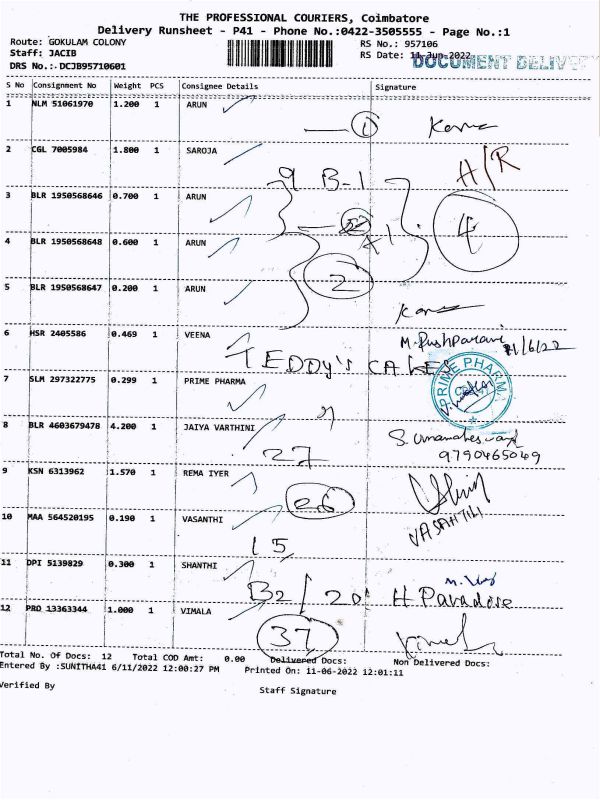 THE PROFESSIONAL COURIERS, Coimbatore
Delivery Runsheet - P41 - Phone No.:0422-3505555 - Page No.:1
Route: GOKULAM COLONY
RS No.: 957106
Staff: JACIB
RS Date: 11-Jun-2022
DRS No.:-DCJB95710601
DOCUMENT DELIV
S No Consignment No Weight PCS Consignee Details Signature
1 NLM 51061970 1.200 1 ARUN
1
2 CGL 7005984 1.800 1 SAROJA
H/R
9 B-1
3 BLR 1950568646 0.700 1 ARUN
4
4 BLR 1950568648 0.600 1 ARUN
2
5 BLR 1950568647 0.200 1 ARUN
6 HSR 2405586 0.469 1 VEENA
M. Pushparani 11/6/22
TEDDY'S CAKES
7 SLM 297322775 0.299 1 PRIME PHARMA
PRIME PHARM
8 BLR 4603679478 4.200 1 JAIYA VARTHINI
S. Umamaheswari
9790465049
27
9 KSN 6313962 1.570 1 REMA IYER
26
10 MAA 564520195 0.190 1 VASANTHI
VASANTHI
15
11 DPI 5139829 0.300 1 SHANTHI
B2/20 H Paradose
12 PRO 13363344 1.000 1 VIMALA
37
Total No. Of Docs: 12 Total COD Amt: 0.00 Delivered Docs: Non Delivered Docs:
Entered By :SUNITHA41 6/11/2022 12:00:27 PM Printed On: 11-06-2022 12:01:11
Verified By
Staff Signature